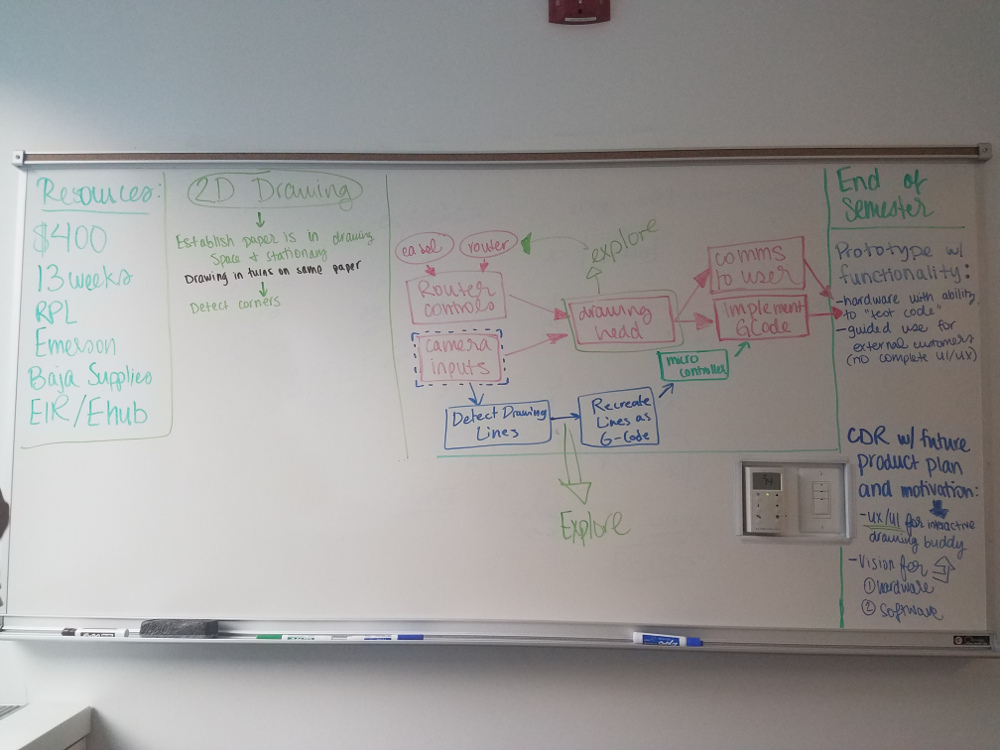 Resources:
$400
13 weeks
RPL
Emerson
Baja Supplies
EIR/Ehub
2D Drawing
Establish paper is in drawing
Space & stationary
Drawing in turns on same paper
Detect corners
easel
router
explore
Router
controls
camera
inputs
drawing
head
comms
to user
implement
GCode
micro
controller
Detect Drawing
Lines
Recreate
Lines as
G-Code
Explore
End of
semester
Prototype w/
functionality:
-hardware with ability
to "test code"
-guided use for
external customers
(no complete UI/UX)
CDR w/ future
product plan
and motivation:
-UX/UI for interactive
drawing buddy
-Vision for
① hardware
② software